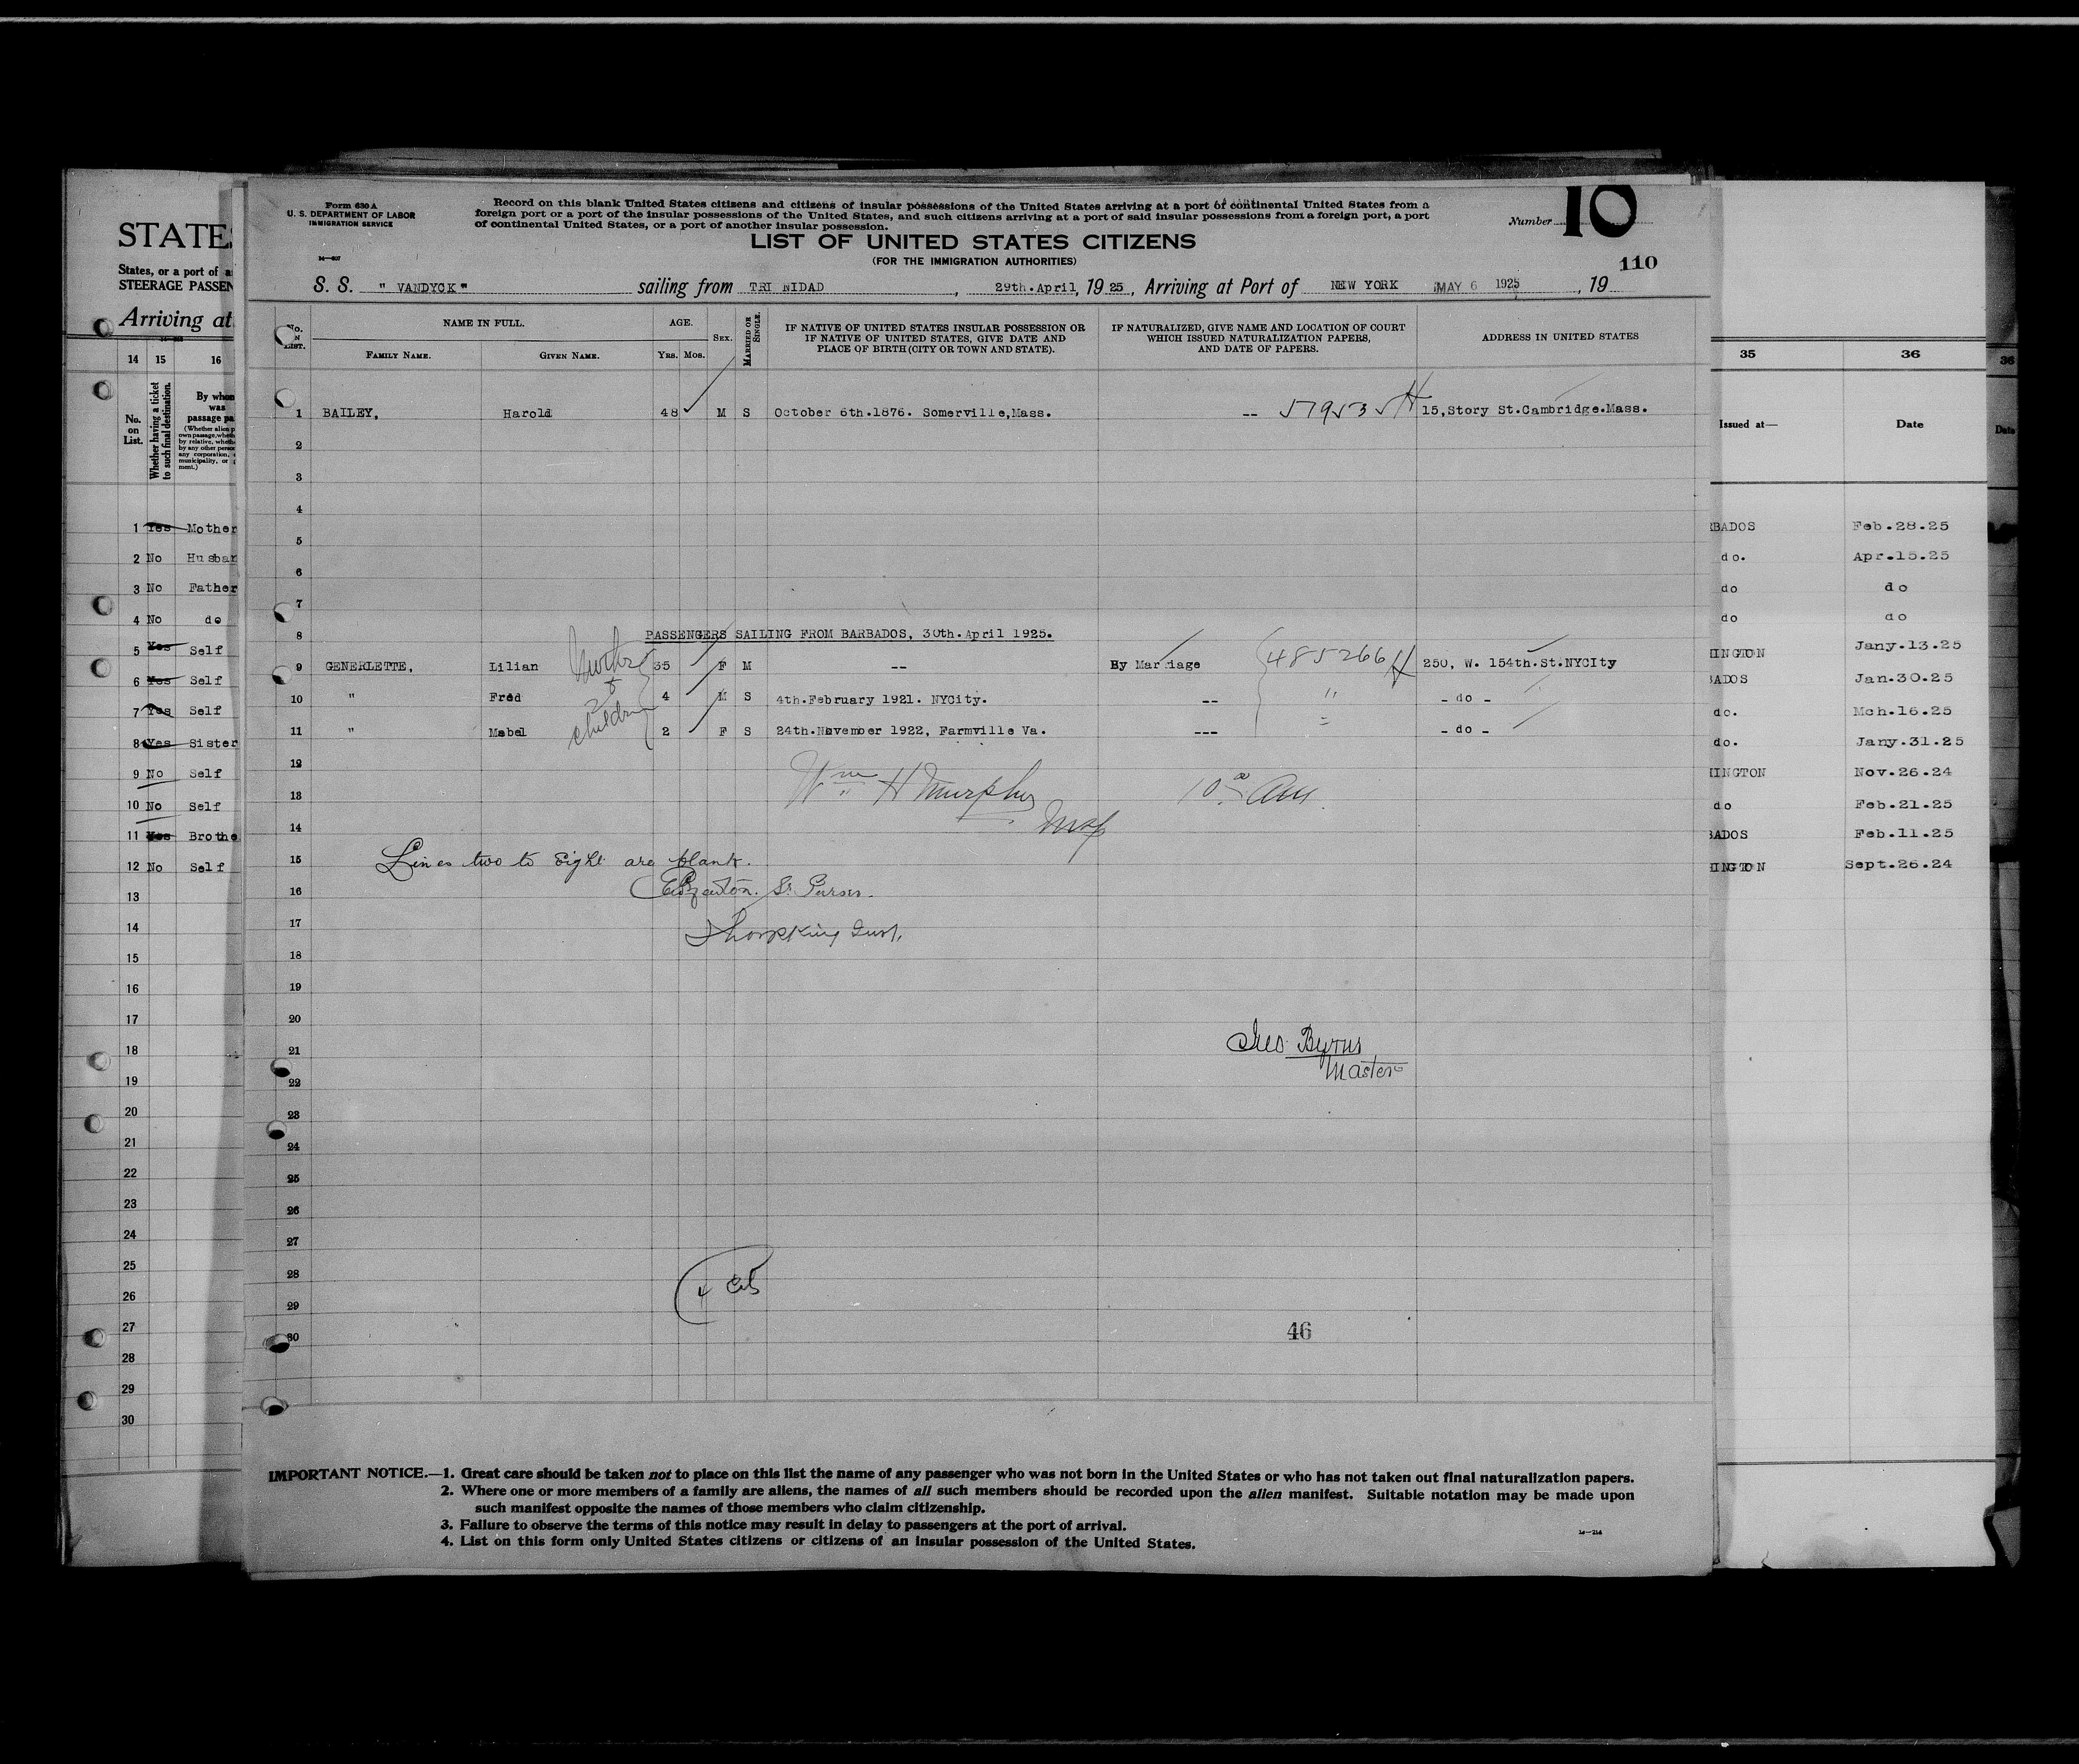 Form 630 A
U. S. DEPARTMENT OF LABOR
IMMIGRATION SERVICE
Record on this blank United States citizens and citizens of insular possessions of the United States arriving at a port of continental United States from a
foreign port or a port of the insular possessions of the United States, and such citizens arriving at a port of said insular possessions from a foreign port, a port
of continental United States, or a port of another insular possession.
Number 10
LIST OF UNITED STATES CITIZENS
(FOR THE IMMIGRATION AUTHORITIES)
110
S. S. " VANDYCK" sailing from TRI NIDAD, 29th.April, 19 25, Arriving at Port of NEW YORK MAY 6 1925, 19
No. ON LIST. NAME IN FULL. AGE. SEX. MARRIED OR SINGLE. IF NATIVE OF UNITED STATES INSULAR POSSESSION OR IF NATIVE OF UNITED STATES, GIVE DATE AND PLACE OF BIRTH (CITY OR TOWN AND STATE). IF NATURALIZED, GIVE NAME AND LOCATION OF COURT WHICH ISSUED NATURALIZATION PAPERS, AND DATE OF PAPERS. ADDRESS IN UNITED STATES
FAMILY NAME. GIVEN NAME. YRS. MOS.
1 BAILEY, Harold 48 M S October 6th.1876. Somerville,Mass. -- 579535 H 15,Story St.Cambridge.Mass.
2
3
4
5
6
7
8 PASSENGERS SAILING FROM BARBADOS, 30th.April 1925.
9 GENERLETTE, Lilian Mother 35 F M -- By Marriage 485266 H 250, W. 154th.St.NYCIty
10 " Fred & 2 4 M S 4th.February 1921. NYCity. -- " - do -
11 " Mabel children 2 F S 24th.November 1922, Farmville Va. --- " - do -
12
13 Wm H Murphy 10 00 AM.
14 Insp
15 Lines two to Eight are blank.
16 Sr. Purser.
17
18
19
20
21 Geo. Byrns
22 Master
23
24
25
26
27
28 4
29
30 46
IMPORTANT NOTICE.—1. Great care should be taken not to place on this list the name of any passenger who was not born in the United States or who has not taken out final naturalization papers.
2. Where one or more members of a family are aliens, the names of all such members should be recorded upon the alien manifest. Suitable notation may be made upon
such manifest opposite the names of those members who claim citizenship.
3. Failure to observe the terms of this notice may result in delay to passengers at the port of arrival.
4. List on this form only United States citizens or citizens of an insular possession of the United States.
STATES
States, or a port of a
STEERAGE PASSEN
Arriving at
14 15 16
No. on List. Whether having a ticket to such final destination. By whom was passage pa
1 Yes Mother
2 No Husban
3 No Father
4 No do
5 Yes Self
6 Yes Self
7 Yes Self
8 Yes Sister
9 No Self
10 No Self
11 Yes Brothe
12 No Self
13
14
15
16
17
18
19
20
21
22
23
24
25
26
27
28
29
30
35 36
Issued at— Date
BADOS Feb.28.25
do. Apr.15.25
do do
do do
INGTON Jany.13.25
ADOS Jan.30.25
do. Mch.16.25
do. Jany.31.25
INGTON Nov.26.24
do Feb.21.25
BADOS Feb.11.25
INGTON Sept.26.24
36
Date